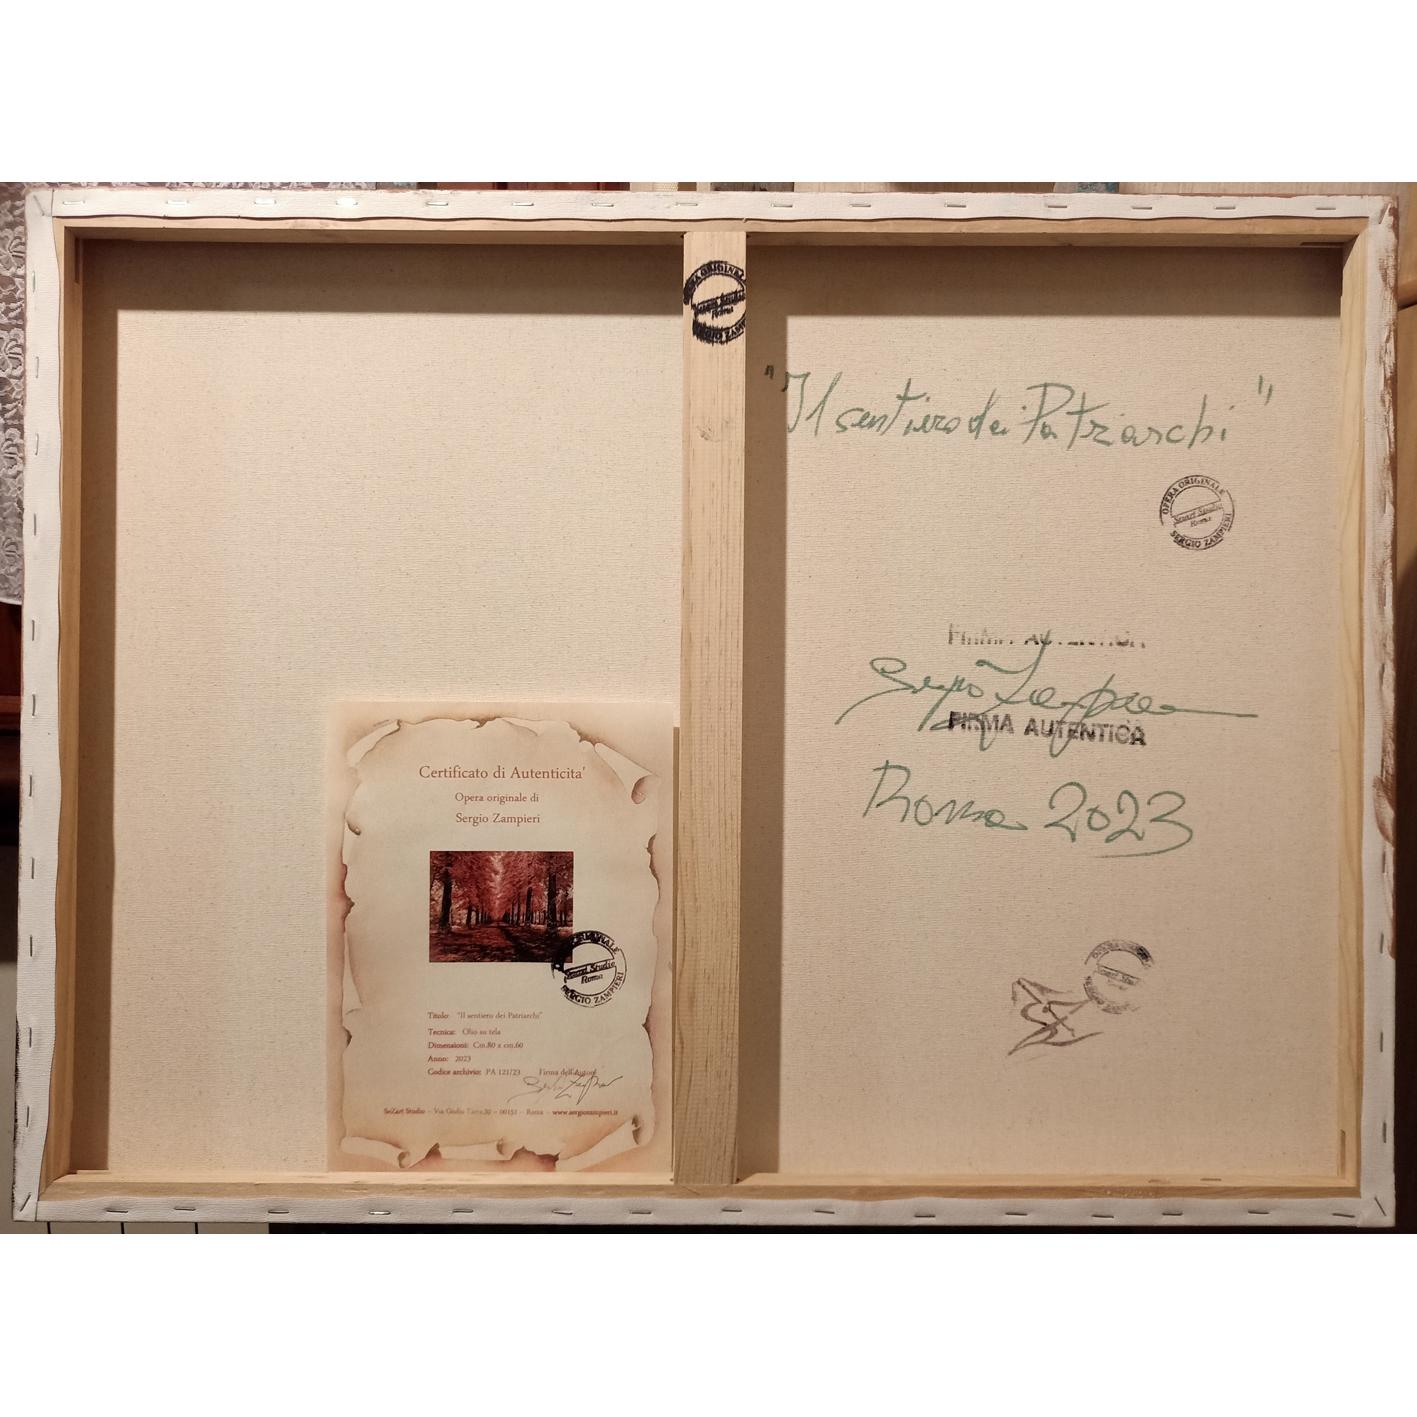 OPERA ORIGINALE
Sezart Studio
Roma
SERGIO ZAMPIERI
"Il sentiero dei Patriarchi"
OPERA ORIGINALE
Sezart Studio
Roma
SERGIO ZAMPIERI
FIRMA AUTENTICA
Sergio Zampieri
FIRMA AUTENTICA
Roma 2023
OPERA ORIGINALE
Certificato di Autenticita'
Opera originale di
Sergio Zampieri
Sezart Studio
Roma
SERGIO ZAMPIERI
Titolo: "Il sentiero dei Patriarchi"
Tecnica: Olio su tela
Dimensioni: Cm.80 x cm.60
Anno: 2023
Codice archivio: PA 121/23 Firma dell'Autore
SeZart Studio – Via Giulio Tarra,30 – 00151 – Roma – www.sergiozampieri.it